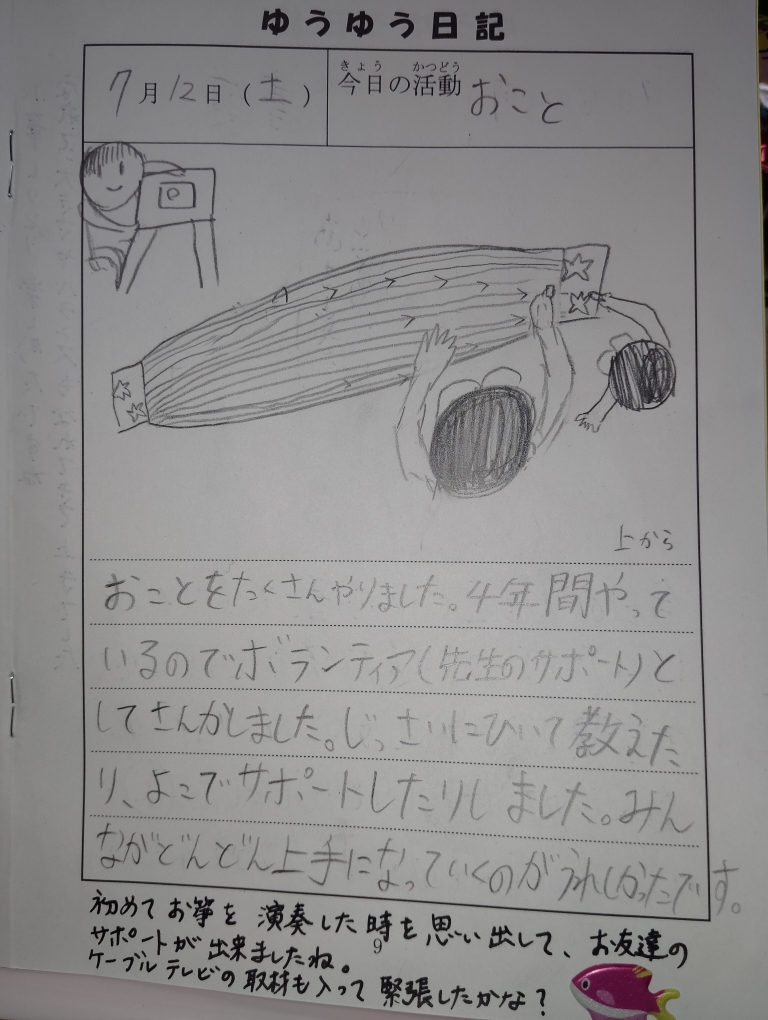 ゆうゆう日記
7月12日(土)
今日の活動 おこと
きょう かつどう
上から
おことをたくさんやりました。4年間やって
いるのでボランティア(先生のサポート)と
してさんかしました。じっさいにひいて教えた
り、よこでサポートしたりしました。みん
ながどんどん上手になっていくのがうれしかったです。
初めてお箏を演奏した時を思い出して、お友達の
サポートが出来ましたね。
ケーブルテレビの取材も入って緊張したかな?
9